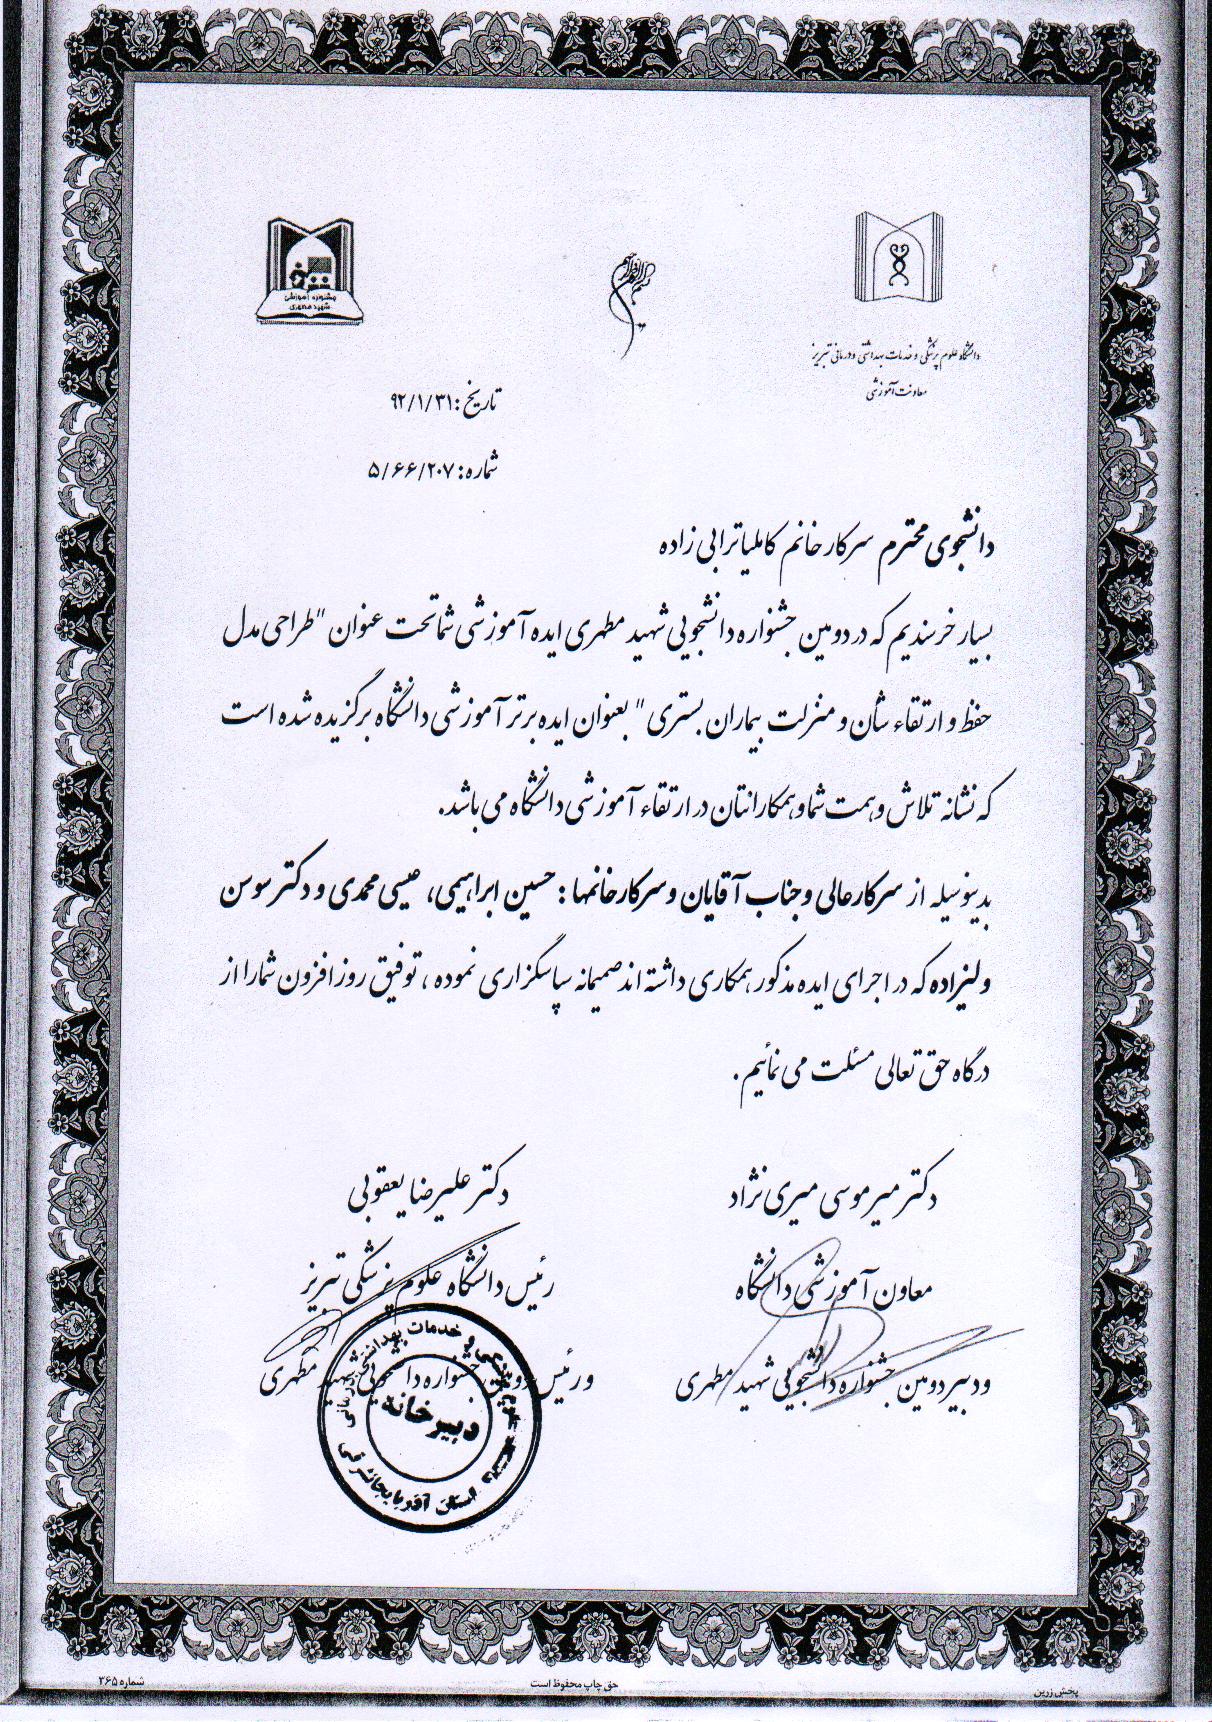 جشنواره آموزشی
شهید مطهری
دانشگاه علوم پزشکی و خدمات بهداشتی و درمانی تبریز
معاونت آموزشی
تاریخ: ۹۲/۱/۳۱
شماره: ۵/۶۶/۲۰۷
دانشجوی محترم سرکار خانم کاملیا ترابی زاده
بسیار خرسندیم که در دومین جشنواره دانشجویی شهید مطهری ایده آموزشی شما تحت عنوان "طراحی مدل
حفظ و ارتقاء شأن و منزلت بیماران بستری" بعنوان ایده برتر آموزشی دانشگاه برگزیده شده است
که نشانه تلاش و همت شما و همکارانتان در ارتقاء آموزشی دانشگاه می باشد.
بدینوسیله از سرکار عالی و جناب آقایان و سرکار خانمها: حسین ابراهیمی، عیسی محمدی و دکتر سوسن
ولیزاده که در اجرای ایده مذکور همکاری داشته اند صمیمانه سپاسگزاری نموده، توفیق روز افزون شما را از
درگاه حق تعالی مسئلت می نمائیم.
دکتر میرموسی میری نژاد
معاون آموزشی دانشگاه
و دبیر دومین جشنواره دانشجویی شهید مطهری
دکتر علیرضا یعقوبی
رئیس دانشگاه علوم پزشکی تبریز
و رئیس دومین جشنواره دانشجویی شهید مطهری
دانشگاه علوم پزشکی و خدمات بهداشتی درمانی
دبیرخانه
استان آذربایجانشرقی
شماره ۳۶۵
حق چاپ محفوظ است
پخش زرین